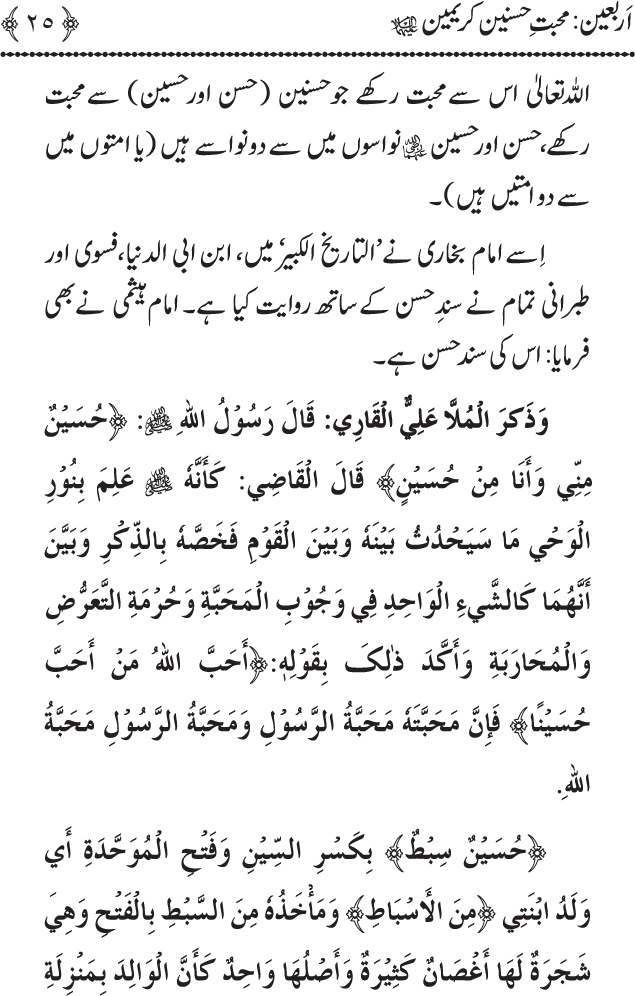 اَربعین: محبتِ حسنین کریمین علیہما السلام ﴿ ۲۵ ﴾
اللہ تعالیٰ اس سے محبت رکھے جو حسنین (حسن اور حسین) سے محبت
رکھے، حسن اور حسین علیہما السلام نواسوں میں سے دو نواسے ہیں (یا امتوں میں
سے دو امتیں ہیں)۔
اِسے امام بخاری نے ’التاریخ الکبیر‘ میں، ابن ابی الدنیا، فسوی اور
طبرانی تمام نے سندِ حسن کے ساتھ روایت کیا ہے۔ امام ہیثمی نے بھی
فرمایا: اس کی سند حسن ہے۔
وَذَكَرَ الْمُلَّا عَلِيٌّ الْقَارِي: قَالَ رَسُوْلُ اللهِ ﷺ: ﴿حُسَيْنٌ
مِنِّي وَأَنَا مِنْ حُسَيْنٍ﴾ قَالَ الْقَاضِي: كَأَنَّهُ ﷺ عَلِمَ بِنُوْرِ
الْوَحْيِ مَا سَيَحْدُثُ بَيْنَهُ وَبَيْنَ الْقَوْمِ فَخَصَّهُ بِالذِّكْرِ وَبَيَّنَ
أَنَّهُمَا كَالشَّيءِ الْوَاحِدِ فِي وَجُوْبِ الْمَحَبَّةِ وَحُرْمَةِ التَّعَرُّضِ
وَالْمُحَارَبَةِ وَأَكَّدَ ذٰلِكَ بِقَوْلِهِ: ﴿أَحَبَّ اللهُ مَنْ أَحَبَّ
حُسَيْنًا﴾ فَإِنَّ مَحَبَّتَهُ مَحَبَّةُ الرَّسُوْلِ وَمَحَبَّةُ الرَّسُوْلِ مَحَبَّةُ
اللهِ.
﴿حُسَيْنٌ سِبْطٌ﴾ بِكَسْرِ السِّيْنِ وَفَتْحِ الْمُوَحَّدَةِ أَي
وَلَدُ ابْنَتِي ﴿مِنَ الْأَسْبَاطِ﴾ وَمَأْخَذُهُ مِنَ السَّبْطِ بِالْفَتْحِ وَهِيَ
شَجَرَةٌ لَهَا أَغْصَانٌ كَثِيْرَةٌ وَأَصْلُهَا وَاحِدٌ كَأَنَّ الْوَالِدَ بِمَنْزِلَةِ